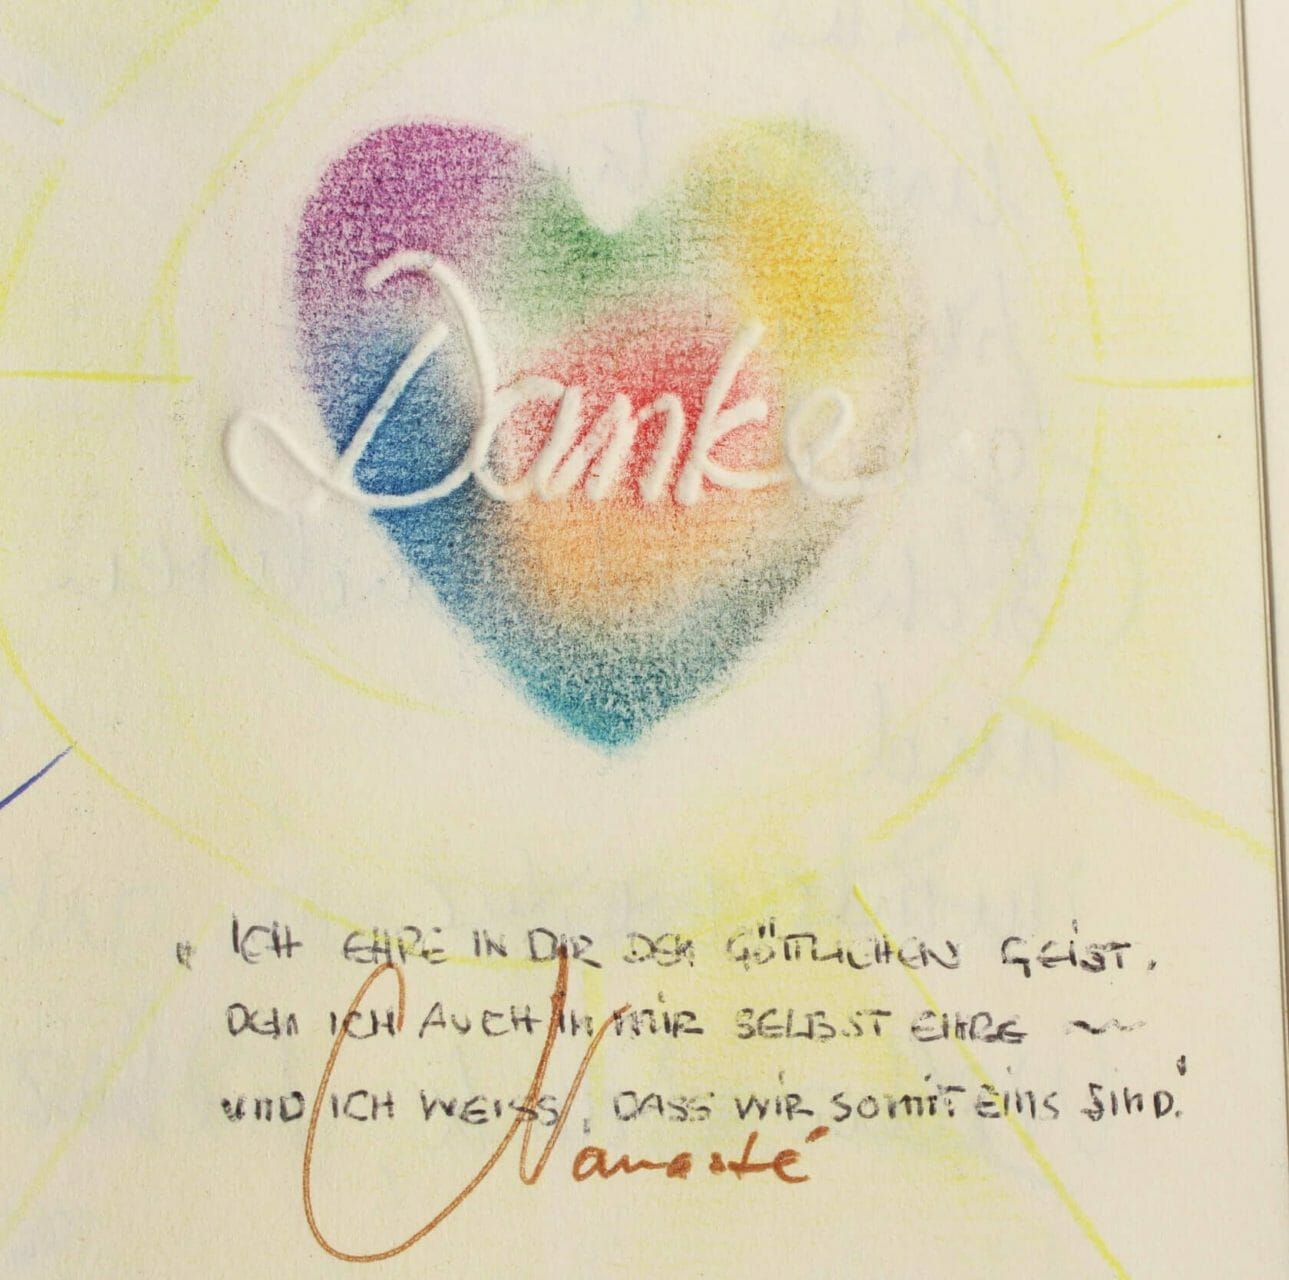 Danke
„ICH EHRE IN DIR DEN GÖTTLICHEN GEIST,
DEN ICH AUCH IN MIR SELBST EHRE ~
UND ICH WEISS, DASS WIR SOMIT EINS SIND."
Namasté